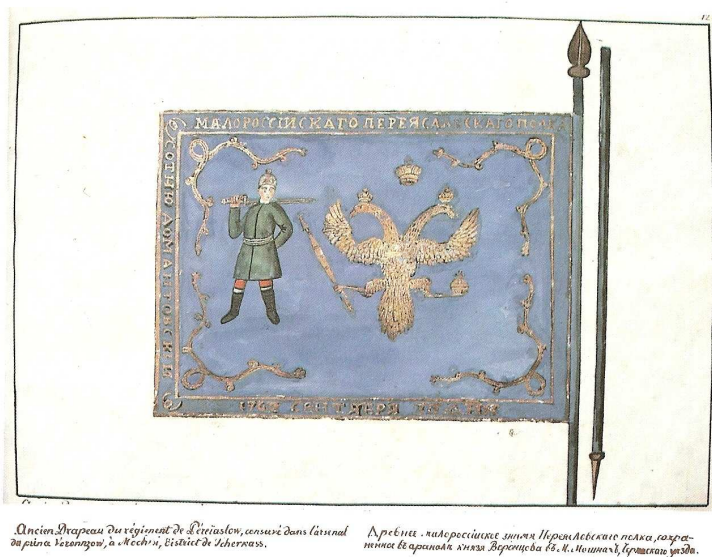 12
МАЛОРОССIИСКАГО ПЕРЕЯСЛАВСКАГО ПОЛКУ
СОТНЮ ДОМАНТОВСКИ
1762 СЕНТЯБРЯ
Ancien Drapeau du régiment de Péréiaslow, censuré dans l'arsenal
du prina Voronzow, à Mochni, District de Tcherkass.
Древнее малороссiйское знамя Переяславскаго полка, сохра-
ненное въ арсеналѣ князя Воронцова въ М. Мошнахъ, Черкаскаго уѣзда.